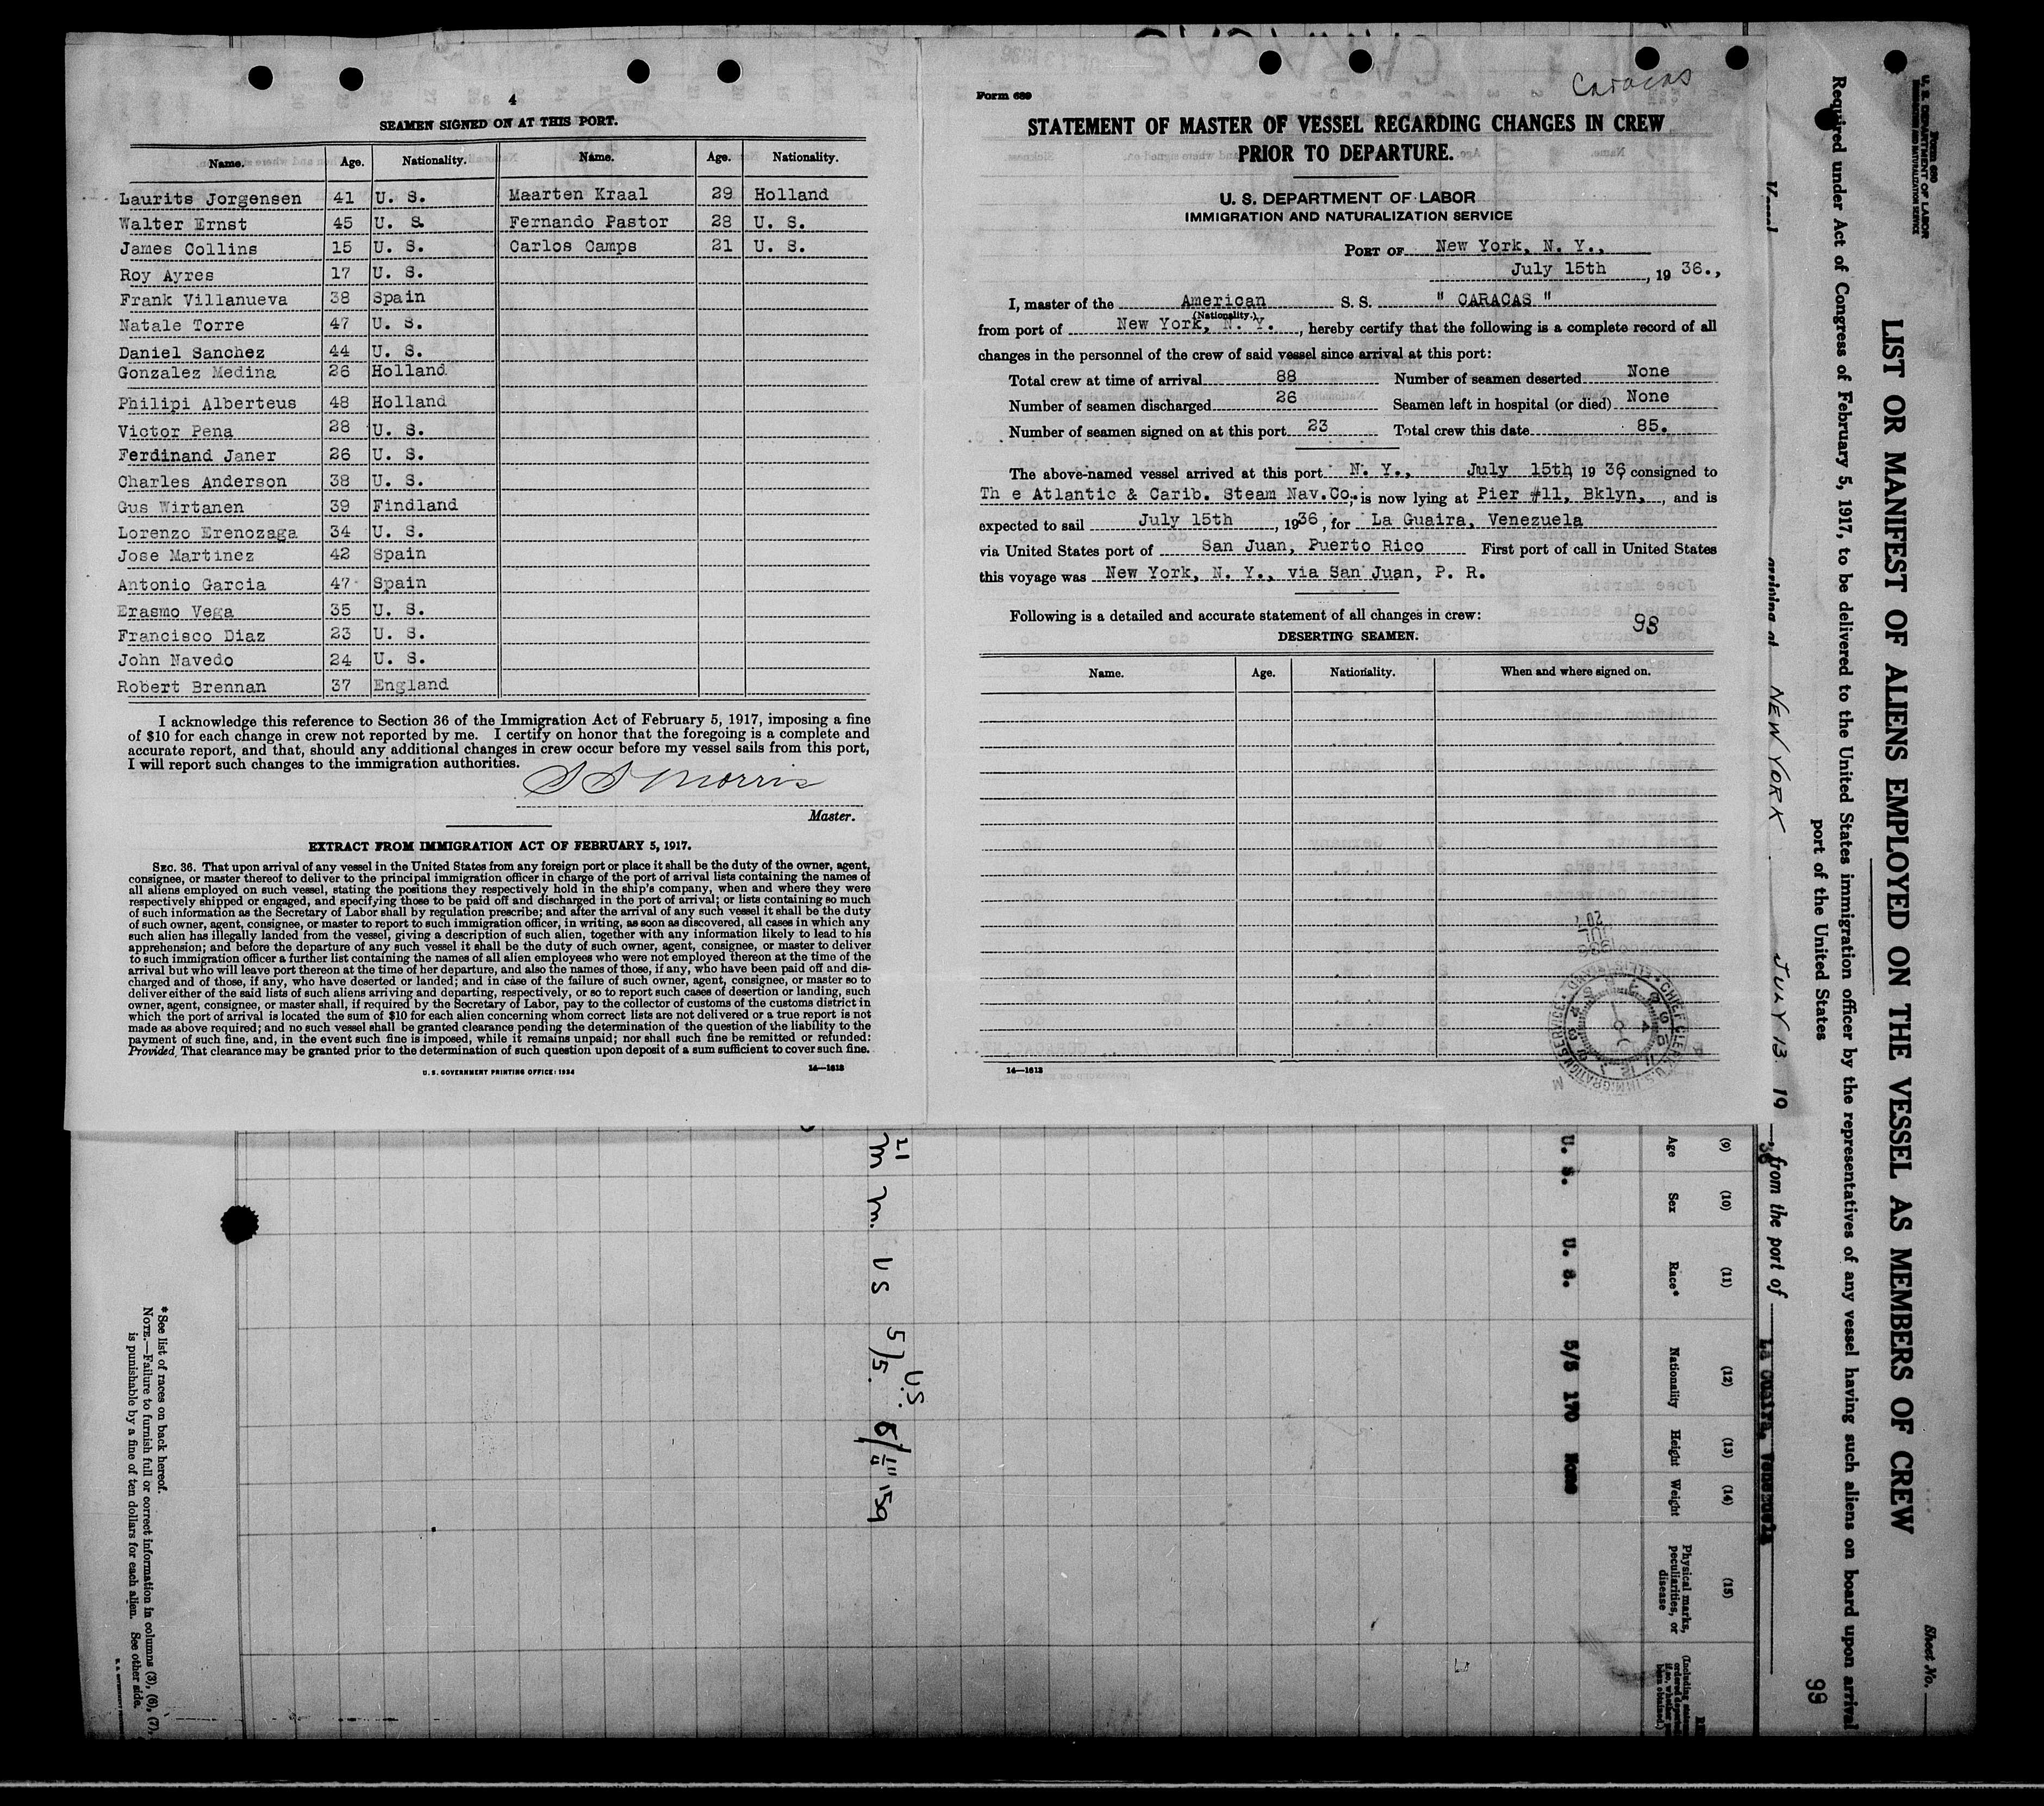 4
SEAMEN SIGNED ON AT THIS PORT.
Name. Age. Nationality. Name. Age. Nationality.
Laurits Jorgensen 41 U. S. Maarten Kraal 29 Holland
Walter Ernst 45 U. S. Fernando Pastor 28 U. S.
James Collins 15 U. S. Carlos Camps 21 U. S.
Roy Ayres 17 U. S.
Frank Villanueva 38 Spain
Natale Torre 47 U. S.
Daniel Sanchez 44 U. S.
Gonzalez Medina 26 Holland
Philipi Alberteus 48 Holland
Victor Pena 28 U. S.
Ferdinand Janer 26 U. S.
Charles Anderson 38 U. S.
Gus Wirtanen 39 Findland
Lorenzo Erenozaga 34 U. S.
Jose Martinez 42 Spain
Antonio Garcia 47 Spain
Erasmo Vega 35 U. S.
Francisco Diaz 23 U. S.
John Navedo 24 U. S.
Robert Brennan 37 England
I acknowledge this reference to Section 36 of the Immigration Act of February 5, 1917, imposing a fine
of $10 for each change in crew not reported by me. I certify on honor that the foregoing is a complete and
accurate report, and that, should any additional changes in crew occur before my vessel sails from this port,
I will report such changes to the immigration authorities.
S S Morris
Master.
EXTRACT FROM IMMIGRATION ACT OF FEBRUARY 5, 1917.
SEC. 36. That upon arrival of any vessel in the United States from any foreign port or place it shall be the duty of the owner, agent,
consignee, or master thereof to deliver to the principal immigration officer in charge of the port of arrival lists containing the names of
all aliens employed on such vessel, stating the positions they respectively hold in the ship's company, when and where they were
respectively shipped or engaged, and specifying those to be paid off and discharged in the port of arrival; or lists containing so much
of such information as the Secretary of Labor shall by regulation prescribe; and after the arrival of any such vessel it shall be the duty
of such owner, agent, consignee, or master to report to such immigration officer, in writing, as soon as discovered, all cases in which any
such alien has illegally landed from the vessel, giving a description of such alien, together with any information likely to lead to his
apprehension; and before the departure of any such vessel it shall be the duty of such owner, agent, consignee, or master to deliver
to such immigration officer a further list containing the names of all alien employees who were not employed thereon at the time of the
arrival but who will leave port thereon at the time of her departure, and also the names of those, if any, who have been paid off and dis-
charged and of those, if any, who have deserted or landed; and in case of the failure of such owner, agent, consignee, or master so to
deliver either of the said lists of such aliens arriving and departing, respectively, or so to report such cases of desertion or landing, such
owner, agent, consignee, or master shall, if required by the Secretary of Labor, pay to the collector of customs of the customs district in
which the port of arrival is located the sum of $10 for each alien concerning whom correct lists are not delivered or a true report is not
made as above required; and no such vessel shall be granted clearance pending the determination of the question of the liability to the
payment of such fine, and, in the event such fine is imposed, while it remains unpaid; nor shall such fine be remitted or refunded:
Provided, That clearance may be granted prior to the determination of such question upon deposit of a sum sufficient to cover such fine.
U. S. GOVERNMENT PRINTING OFFICE: 1934 14—1613
Caracas
Form 689
STATEMENT OF MASTER OF VESSEL REGARDING CHANGES IN CREW
PRIOR TO DEPARTURE.
U. S. DEPARTMENT OF LABOR
IMMIGRATION AND NATURALIZATION SERVICE
PORT OF New York, N. Y.,
July 15th, 1936.,
I, master of the American S. S. " CARACAS "
(Nationality.)
from port of New York, N. Y., hereby certify that the following is a complete record of all
changes in the personnel of the crew of said vessel since arrival at this port:
Total crew at time of arrival 88 Number of seamen deserted None
Number of seamen discharged 26 Seamen left in hospital (or died) None
Number of seamen signed on at this port 23 Total crew this date 85.
The above-named vessel arrived at this port N. Y., July 15th, 1936, consigned to
Th e Atlantic & Carib. Steam Nav.Co., is now lying at Pier #11, Bklyn, , and is
expected to sail July 15th, 1936, for La Guaira, Venezuela
via United States port of San Juan, Puerto Rico First port of call in United States
this voyage was New York, N. Y., via San Juan, P. R.
Following is a detailed and accurate statement of all changes in crew: 98
DESERTING SEAMEN.
Name. Age. Nationality. When and where signed on.
14—1613
Form 680
U. S. DEPARTMENT OF LABOR
IMMIGRATION AND NATURALIZATION SERVICE
Sheet No.
LIST OR MANIFEST OF ALIENS EMPLOYED ON THE VESSEL AS MEMBERS OF CREW
Required under Act of Congress of February 5, 1917, to be delivered to the United States immigration officer by the representatives of any vessel having such aliens on board upon arrival
port of the United States
99
Vessel arriving at NEW YORK JULY 13 1936, from the port of La Guaira, Venezuela
(9) (10) (11) (12) (13) (14) (15)
Age Sex Race* Nationality Height Weight Physical marks, peculiarities, or disease
U. S. U. S. 5/5 170 None
21 m m. US 5/5. U.S.
*See list of races on back hereof.
NOTE.—Failure to furnish full or correct information in columns (3), (6), (7),
is punishable by a fine of ten dollars for each alien. See other side.